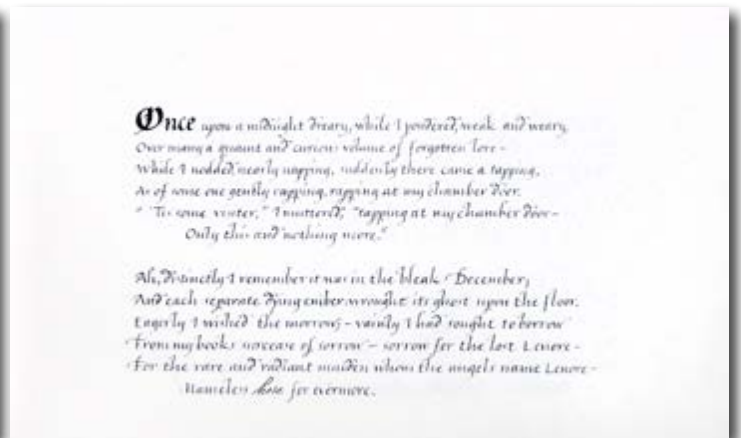 Once upon a midnight dreary, while I pondered, weak and weary,
Over many a quaint and curious volume of forgotten lore -
While I nodded, nearly napping, suddenly there came a tapping,
As of some one gently rapping, rapping at my chamber door.
" 'Tis some visiter," I muttered, "tapping at my chamber door -
Only this and nothing more."
Ah, distinctly I remember it was in the bleak December;
And each separate dying ember wrought its ghost upon the floor.
Eagerly I wished the morrow; - vainly I had sought to borrow
From my books surcease of sorrow - sorrow for the lost Lenore -
For the rare and radiant maiden whom the angels name Lenore -
Nameless here for evermore.